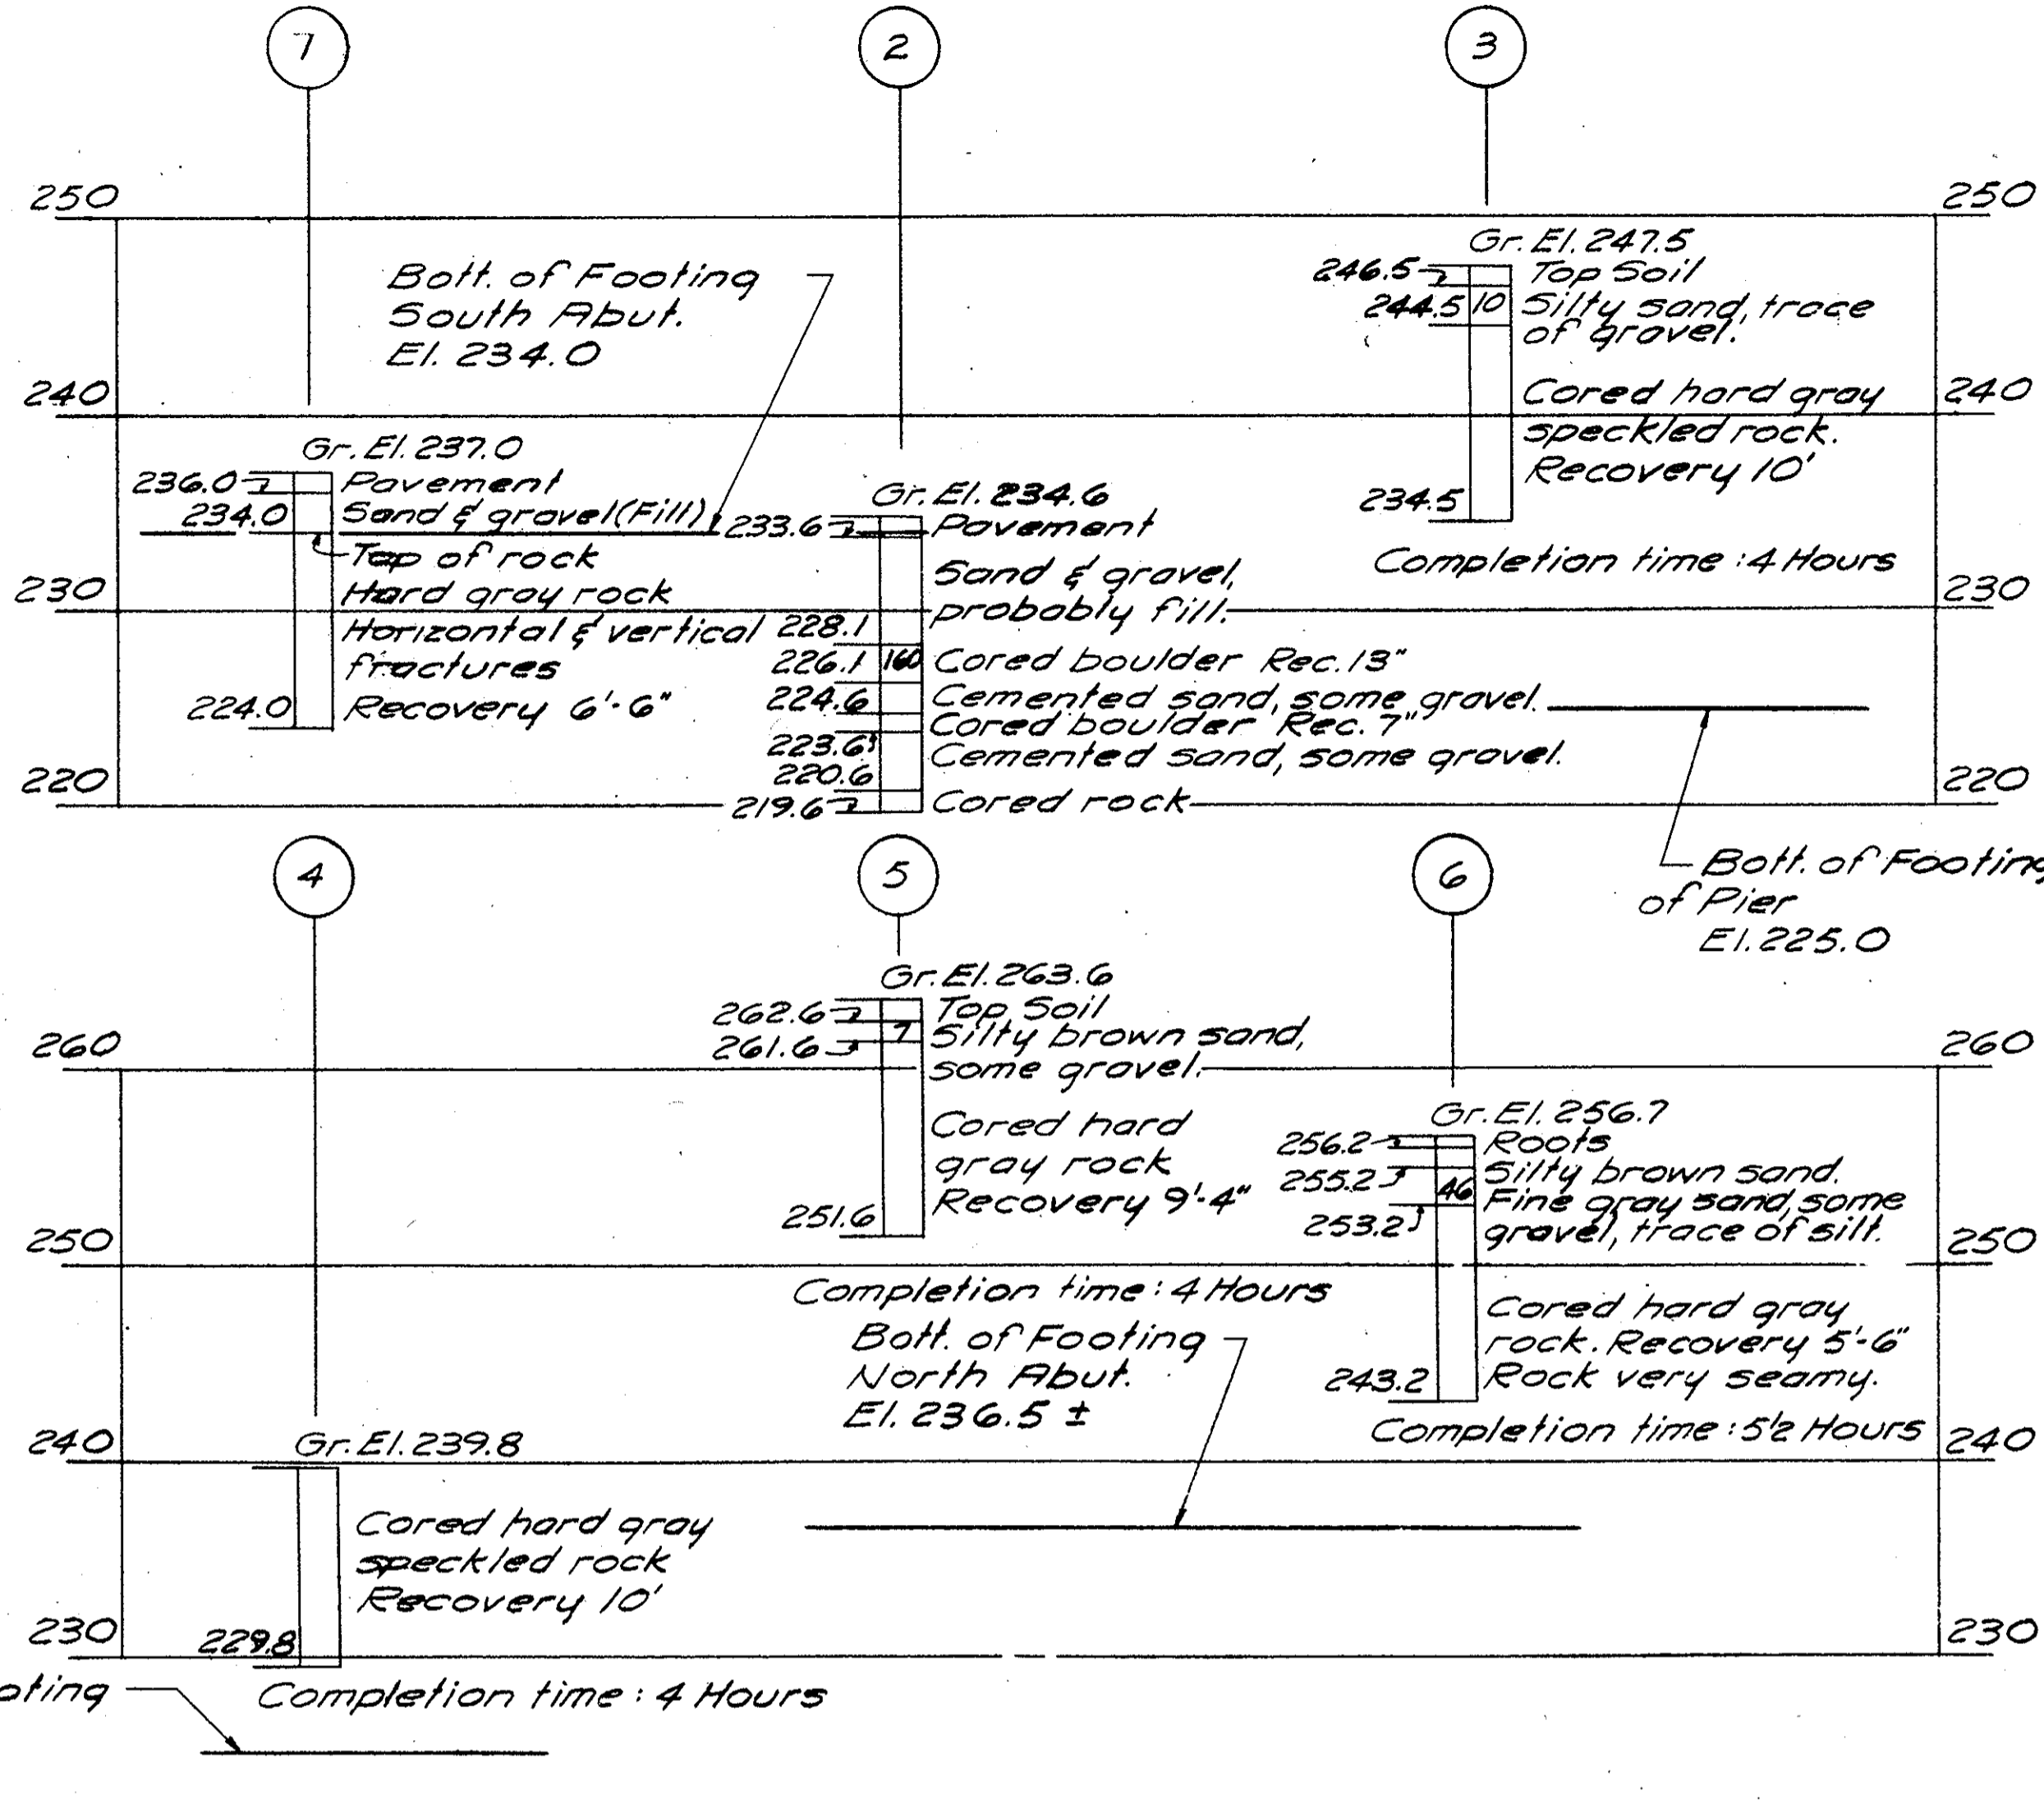 7
2
3
250
250
Gr. El. 247.5
246.5
Top Soil
244.5
10
Silty sand, trace
of gravel.
Bott. of Footing
South Abut.
El. 234.0
240
240
Cored hard gray
speckled rock.
Recovery 10'
234.5
Completion time : 4 Hours
Gr. El. 237.0
236.0
Pavement
234.0
Sand & gravel (Fill)
Top of rock
Hard gray rock
Horizontal & vertical
fractures
Recovery 6'-6"
224.0
Gr. El. 234.6
233.6
Pavement
Sand & gravel,
probably fill.
230
230
228.1
226.1
160
Cored boulder Rec. 13"
224.6
Cemented sand, some gravel.
Cored boulder Rec. 7"
223.6
Cemented sand, some gravel.
220.6
219.6
Cored rock
220
220
Bott. of Footing
of Pier
El. 225.0
4
5
6
Gr. El. 263.6
262.6
Top Soil
261.6
7
Silty brown sand,
some gravel.
260
260
Cored hard
gray rock
Recovery 9'-4"
251.6
Completion time : 4 Hours
Gr. El. 256.7
256.2
Roots
255.2
Silty brown sand.
46
Fine gray sand, some
gravel, trace of silt.
253.2
250
250
Cored hard gray
rock. Recovery 5'-6"
Rock very seamy.
243.2
Completion time : 5½ Hours
Bott. of Footing
North Abut.
El. 236.5 ±
240
240
Gr. El. 239.8
Cored hard gray
speckled rock
Recovery 10'
229.8
230
230
oting
Completion time : 4 Hours